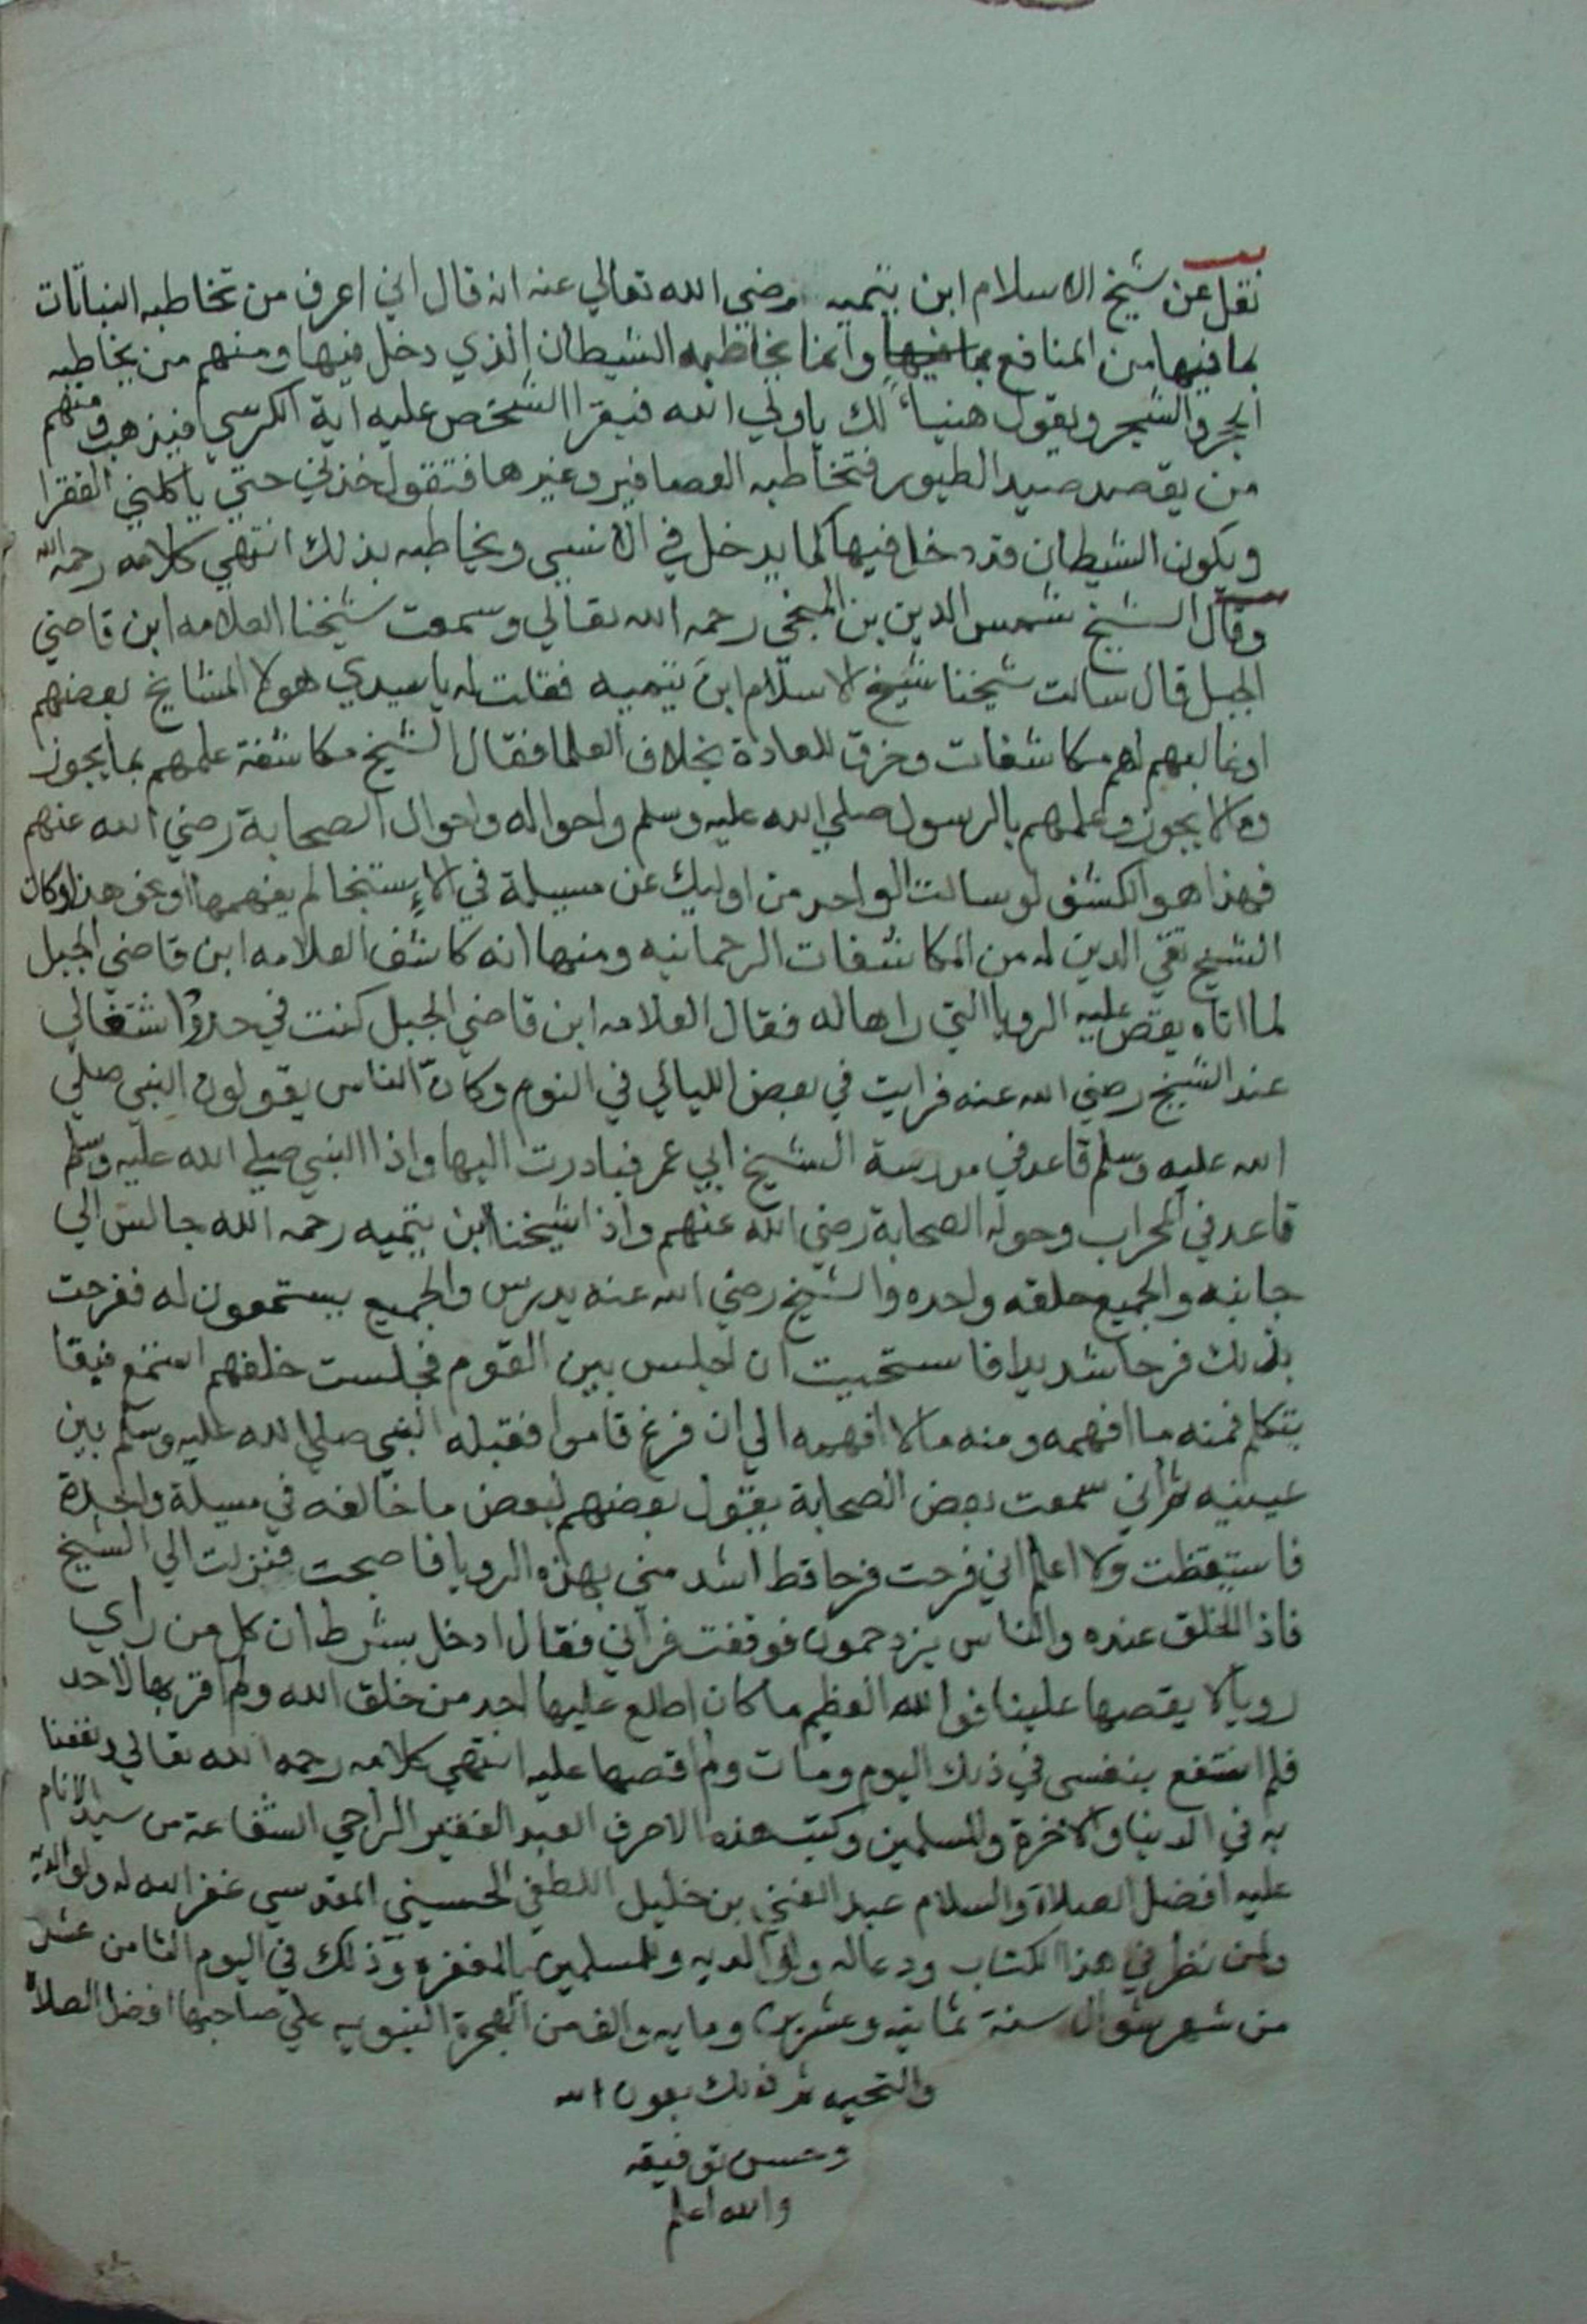 نقل عن شيخ الاسلام ابن تيميه رضي الله تعالي عنه انه قال اني اعرف من تخاطبه النباتات
بما فيها من المنافع بما فيها وانما يخاطبه الشيطان الذي دخل فيها ومنهم من يخاطبه
الحجر والشجر ويقول هنياً لك يا ولي الله فيقرا الشخص عليه اية الكرسي فيذهب ومنهم
من يقصد صيد الطيور فتخاطبه العصافير وغيرها فتقول خذني حتي ياكلني الفقرا
ويكون الشيطان قد دخل فيها كما يدخل في الانسي ويخاطبه بذلك انتهي كلامه رحمه الله
وقال الشيخ شمس الدين بن المنجي رحمه الله تعالي وسمعت شيخنا العلامه ابن قاضي
الجبل قال سالت شيخنا شيخ الاسلام ابن تيميه فقلت له يا سيدي هولا المشايخ بعضهم
او غالبهم لهم مكاشفات وخرق للعادة بخلاف العلما فقال الشيخ مكاشفة علمهم بما يجوز
وما لا يجوز وعلمهم بالرسول صلي الله عليه وسلم واحواله واحوال الصحابة رضي الله عنهم
فهذا هو الكشف لو سالت الواحد من اوليك عن مسيلة في الاستنجا لم يفهمها او نحو هذا وكان
الشيخ تقي الدين له من المكاشفات الرحمانيه ومنها انه كاشف العلامه ابن قاضي الجبل
لما اتاه يقص عليه الرويا التي راها له فقال العلامه ابن قاضي الجبل كنت في حدود اشتغالي
عند الشيخ رضي الله عنه فرايت في بعض الليالي في النوم وكان الناس يقولون النبي صلي
الله عليه وسلم قاعد في مدرسة الشيخ ابي عمر فبادرت اليها واذا النبي صلي الله عليه وسلم
قاعد في المحراب وحوله الصحابة رضي الله عنهم واذا شيخنا ابن تيميه رحمه الله جالس الي
جانبه والجميع حلقه واحده والشيخ رضي الله عنه يدرس والجميع يستمعون له ففرحت
بذلك فرحا شديدا فاستحيت ان اجلس بين القوم فجلست خلفهم استمع فبقا
يتكلم فمنه ما افهمه ومنه ما لا افهمه الي ان فرغ قاموا فقبله النبي صلي الله عليه وسلم بين
عينيه ثم اني سمعت بعض الصحابة يقول بعضهم لبعض ما خالفه في مسيلة واحدة
فاستيقظت ولا اعلم اني فرحت فرحا قط اشد مني بهذه الرويا فاصبحت فنزلت الي الشيخ
فاذا الخلق عنده والناس يزدحمون فوقفت فراني فقال ادخل بشرط ان كل من راي
رويا لا يقصها علينا فوالله العظيم ما كان اطلع عليها احد من خلق الله ولم اقر بها لاحد
فلم انتفع بنفسي في ذلك اليوم ومات ولم اقصها عليه انتهي كلامه رحمه الله تعالي ونفعنا
به في الدنيا والاخرة والمسلمين وكتب هذه الاحرف العبد الفقير الراجي الشفاعة من سيد الانام
عليه افضل الصلاة والسلام عبد الغني بن خليل اللطفي الحسيني المقدسي غفر الله له ولوالديه
ولمن نظر في هذا الكتاب ودعا له ولوالديه وللمسلمين بالمغفره وذلك في اليوم الثامن عشر
من شهر شوال سنة ثمانيه وعشرين ومايه والف من الهجرة النبويه علي صاحبها افضل الصلاة
والتحيه ثم ذلك بعون الله
وحسن توفيقه
والله اعلم